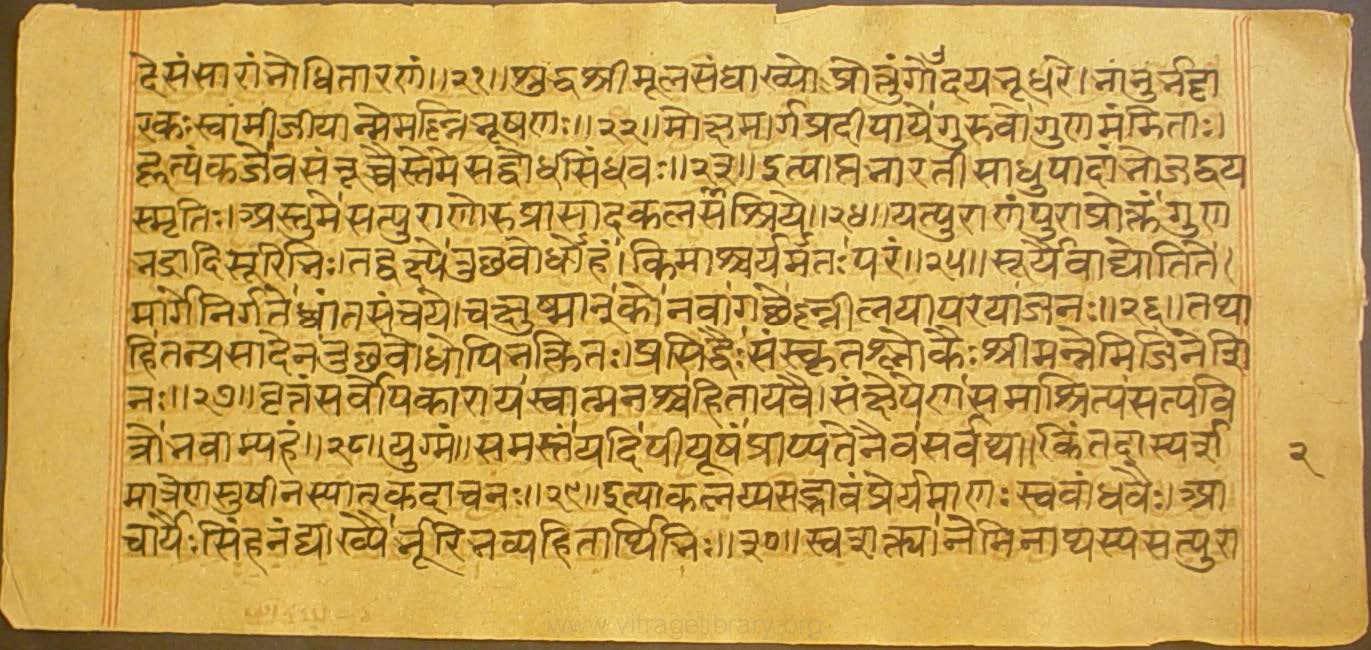 दे संसारांभोधितारणं॥२१॥शुद्धश्रीमूलसंघाख्यो प्रोत्तुंगोदयभूधरे।भानुर्भट्टा
रकःस्वामीजीयान्मेमल्लिभूषणः॥२२॥मोक्षमार्गप्रदीपायेगुरुवोगुणसंमिताः।
स्मृतिः।अस्तुमेसत्पुराणोरुप्रासादकलसश्रिये॥२४॥यत्पुराणंपुराप्रोक्तंगुण
भद्रादिसूरिभिः।तद्वक्ष्येतुछबोधोहं।किमाश्चर्यमतःपरं॥२५॥सूर्येवाद्योतिते
मार्गेनिर्गतेध्वांतसंचये।चक्षुष्मान्कोनवागच्छेल्लीलयापरयाजनः॥२६॥तथा
हितत्प्रसादेनतुछबोधोपिभक्तितः।प्रसिद्धैःसंस्कृतश्लोकैःश्रीमन्नेमिजिनेशि
नः॥२७॥वृत्तंसर्वोपकारायस्वात्मनश्चहितायवै।संक्षेपेणसमाश्रित्यसत्पवि
त्रोभवाम्यहं॥२८॥युग्मं॥समस्तंयदिपीयूषंप्राप्यतेनैवसर्वथा।किंतदास्पर्श
मात्रेणसुषीनस्यात्कदाचनः॥२९॥इत्याकलय्यसद्भावंप्रेर्यमाणःस्वबांधवैः।आ
चार्यैःसिंहनंद्याख्यैर्भूरिभव्यहितार्थिभिः॥३०॥स्वशक्त्यानेमिनाथस्यसत्पुरा
२
www.vitragelibrary.org